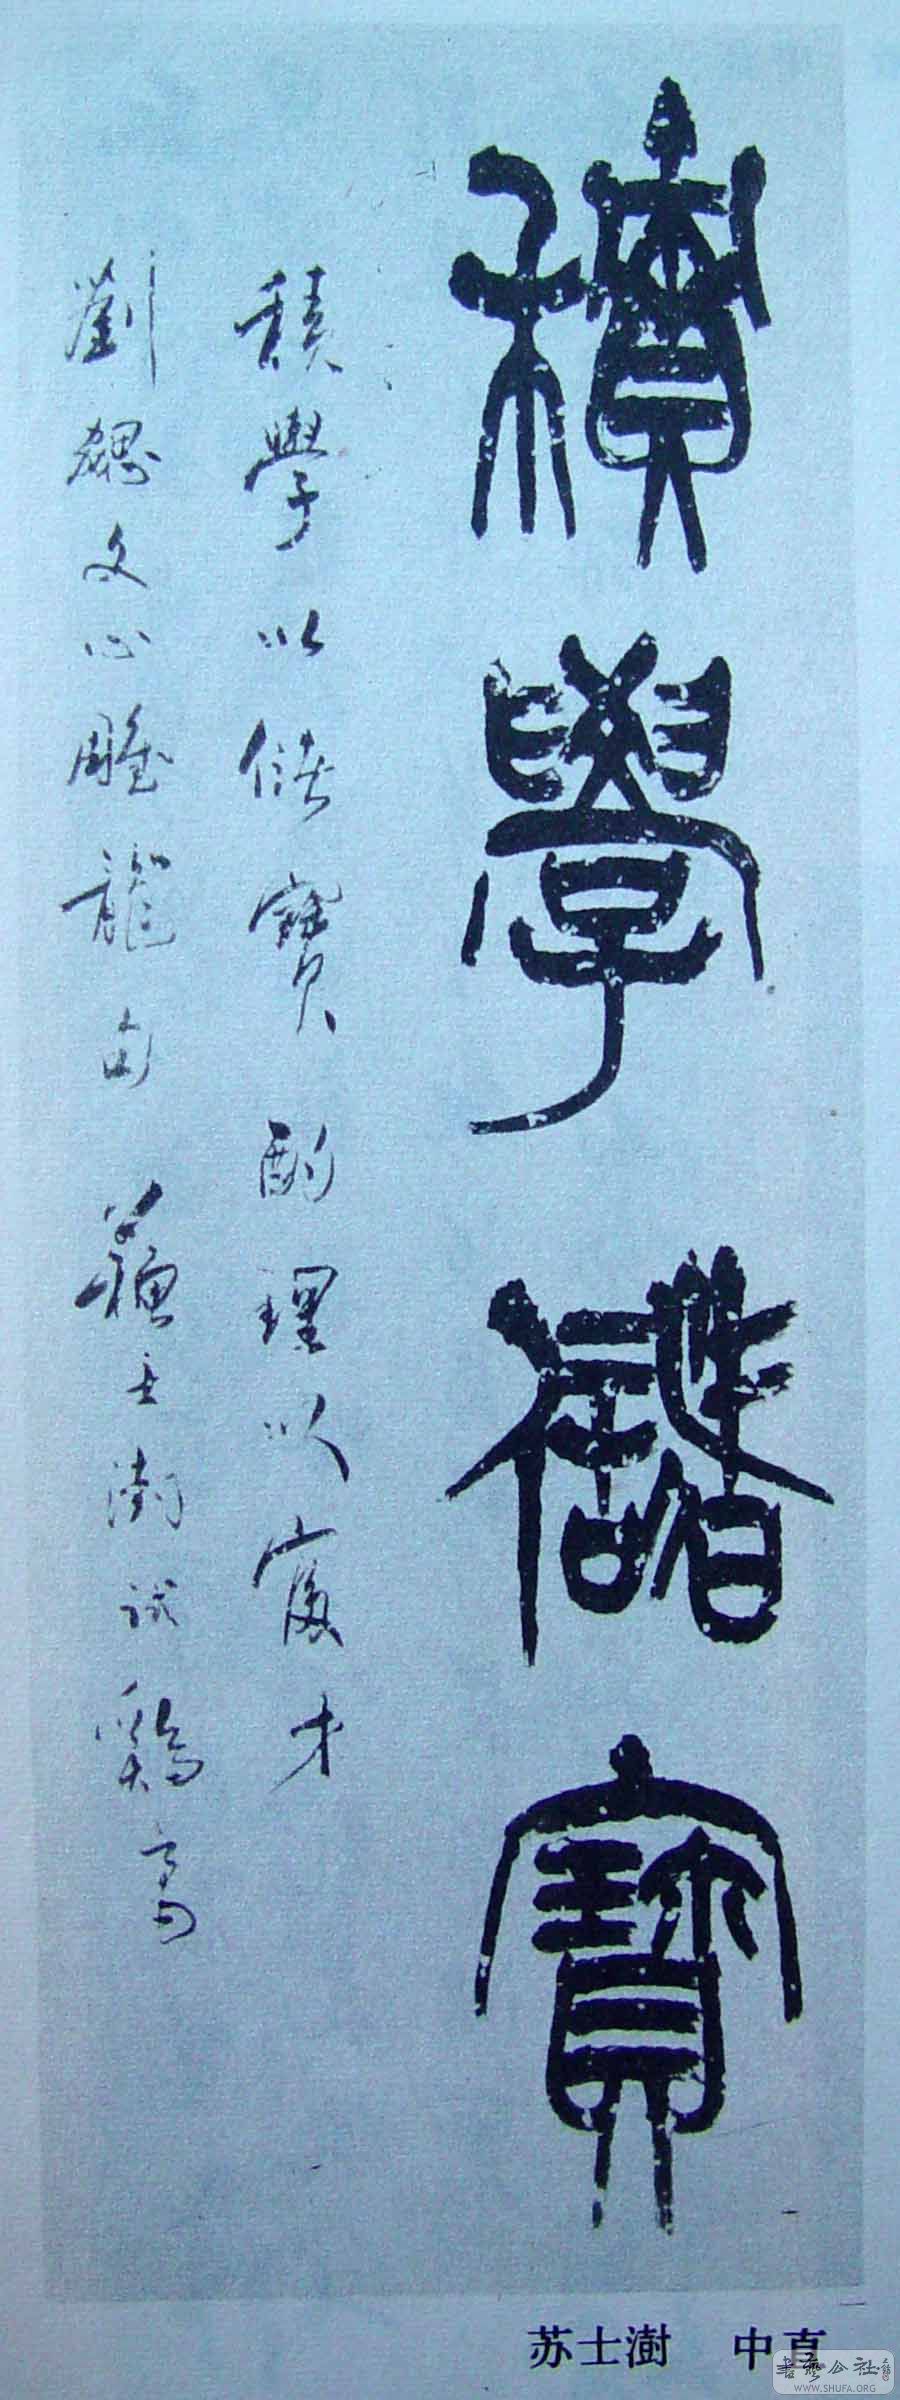 積學儲寶
積學以儲寶酌理以富才
劉勰文心雕龍句 蘇士澍試鷄毫
苏士澍 中直
書藝公社
WWW.SHUFA.ORG